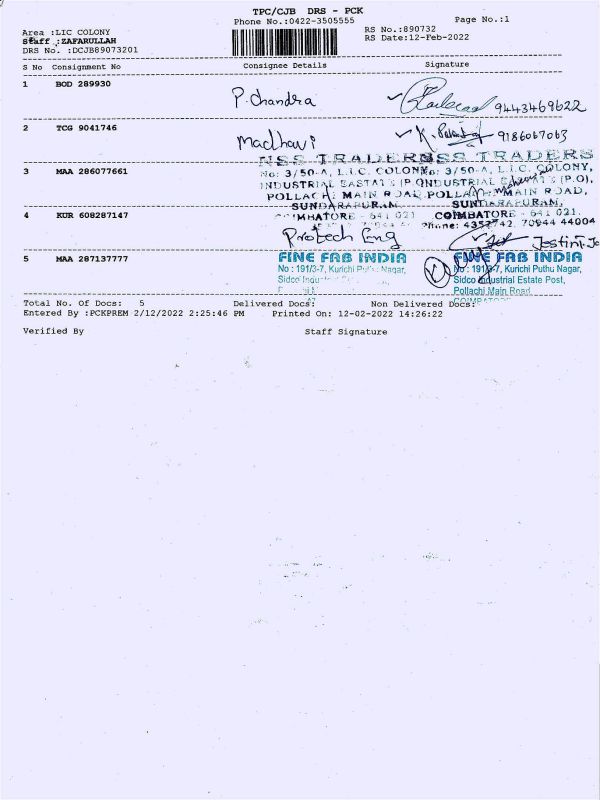 TPC/CJB DRS - PCK
Phone No.:0422-3505555 Page No.:1
Area :LIC COLONY RS No.:890732
Staff :ZAFARULLAH RS Date:12-Feb-2022
DRS No. :DCJB89073201
S No Consignment No Consignee Details Signature
1 BOD 289930 P. Chandra 9443469622
2 TCG 9041746 Madhavi 9186067063
NSS TRADERS NSS TRADERS
3 MAA 286077661 No: 3/50-A, L.I.C. COLONY, No: 3/50-A, L.I.C. COLONY,
INDUSTRIAL INDUSTRIAL (P.O),
POLLACHI MAIN ROAD, POLLACHI MAIN ROAD,
SUNDARAPURAM, SUNDARAPURAM,
4 KUR 608287147 COIMBATORE - 641 021 COIMBATORE - 641 021.
Phone: 4352742, 70944 44004
Protech Eng Jestin
5 MAA 287137777 FINE FAB INDIA FINE FAB INDIA
No : 191/3-7, Kurichi Puthu Nagar, No : 191/3-7, Kurichi Puthu Nagar,
Sidco Sidco Industrial Estate Post,
Pollachi Main Road
Total No. Of Docs: 5 Delivered Docs: Non Delivered Docs:
Entered By :PCKPREM 2/12/2022 2:25:46 PM Printed On: 12-02-2022 14:26:22
Verified By Staff Signature